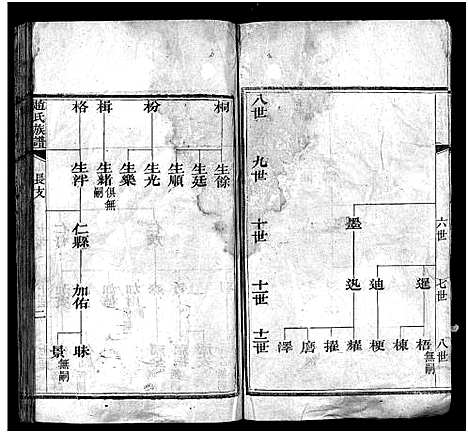 六世
七世
八世
墨
暹
迪
梧無嗣
棟
梗
耀
擢
磨
澤
八世
九世
十世
十一世
十二世
桐
枌
楫
格
生徐
生廷
生順
生光
生樂
生緒俱無嗣
生泮
仁縣
加佑
昧
景無嗣
趙氏族譜
長支
二